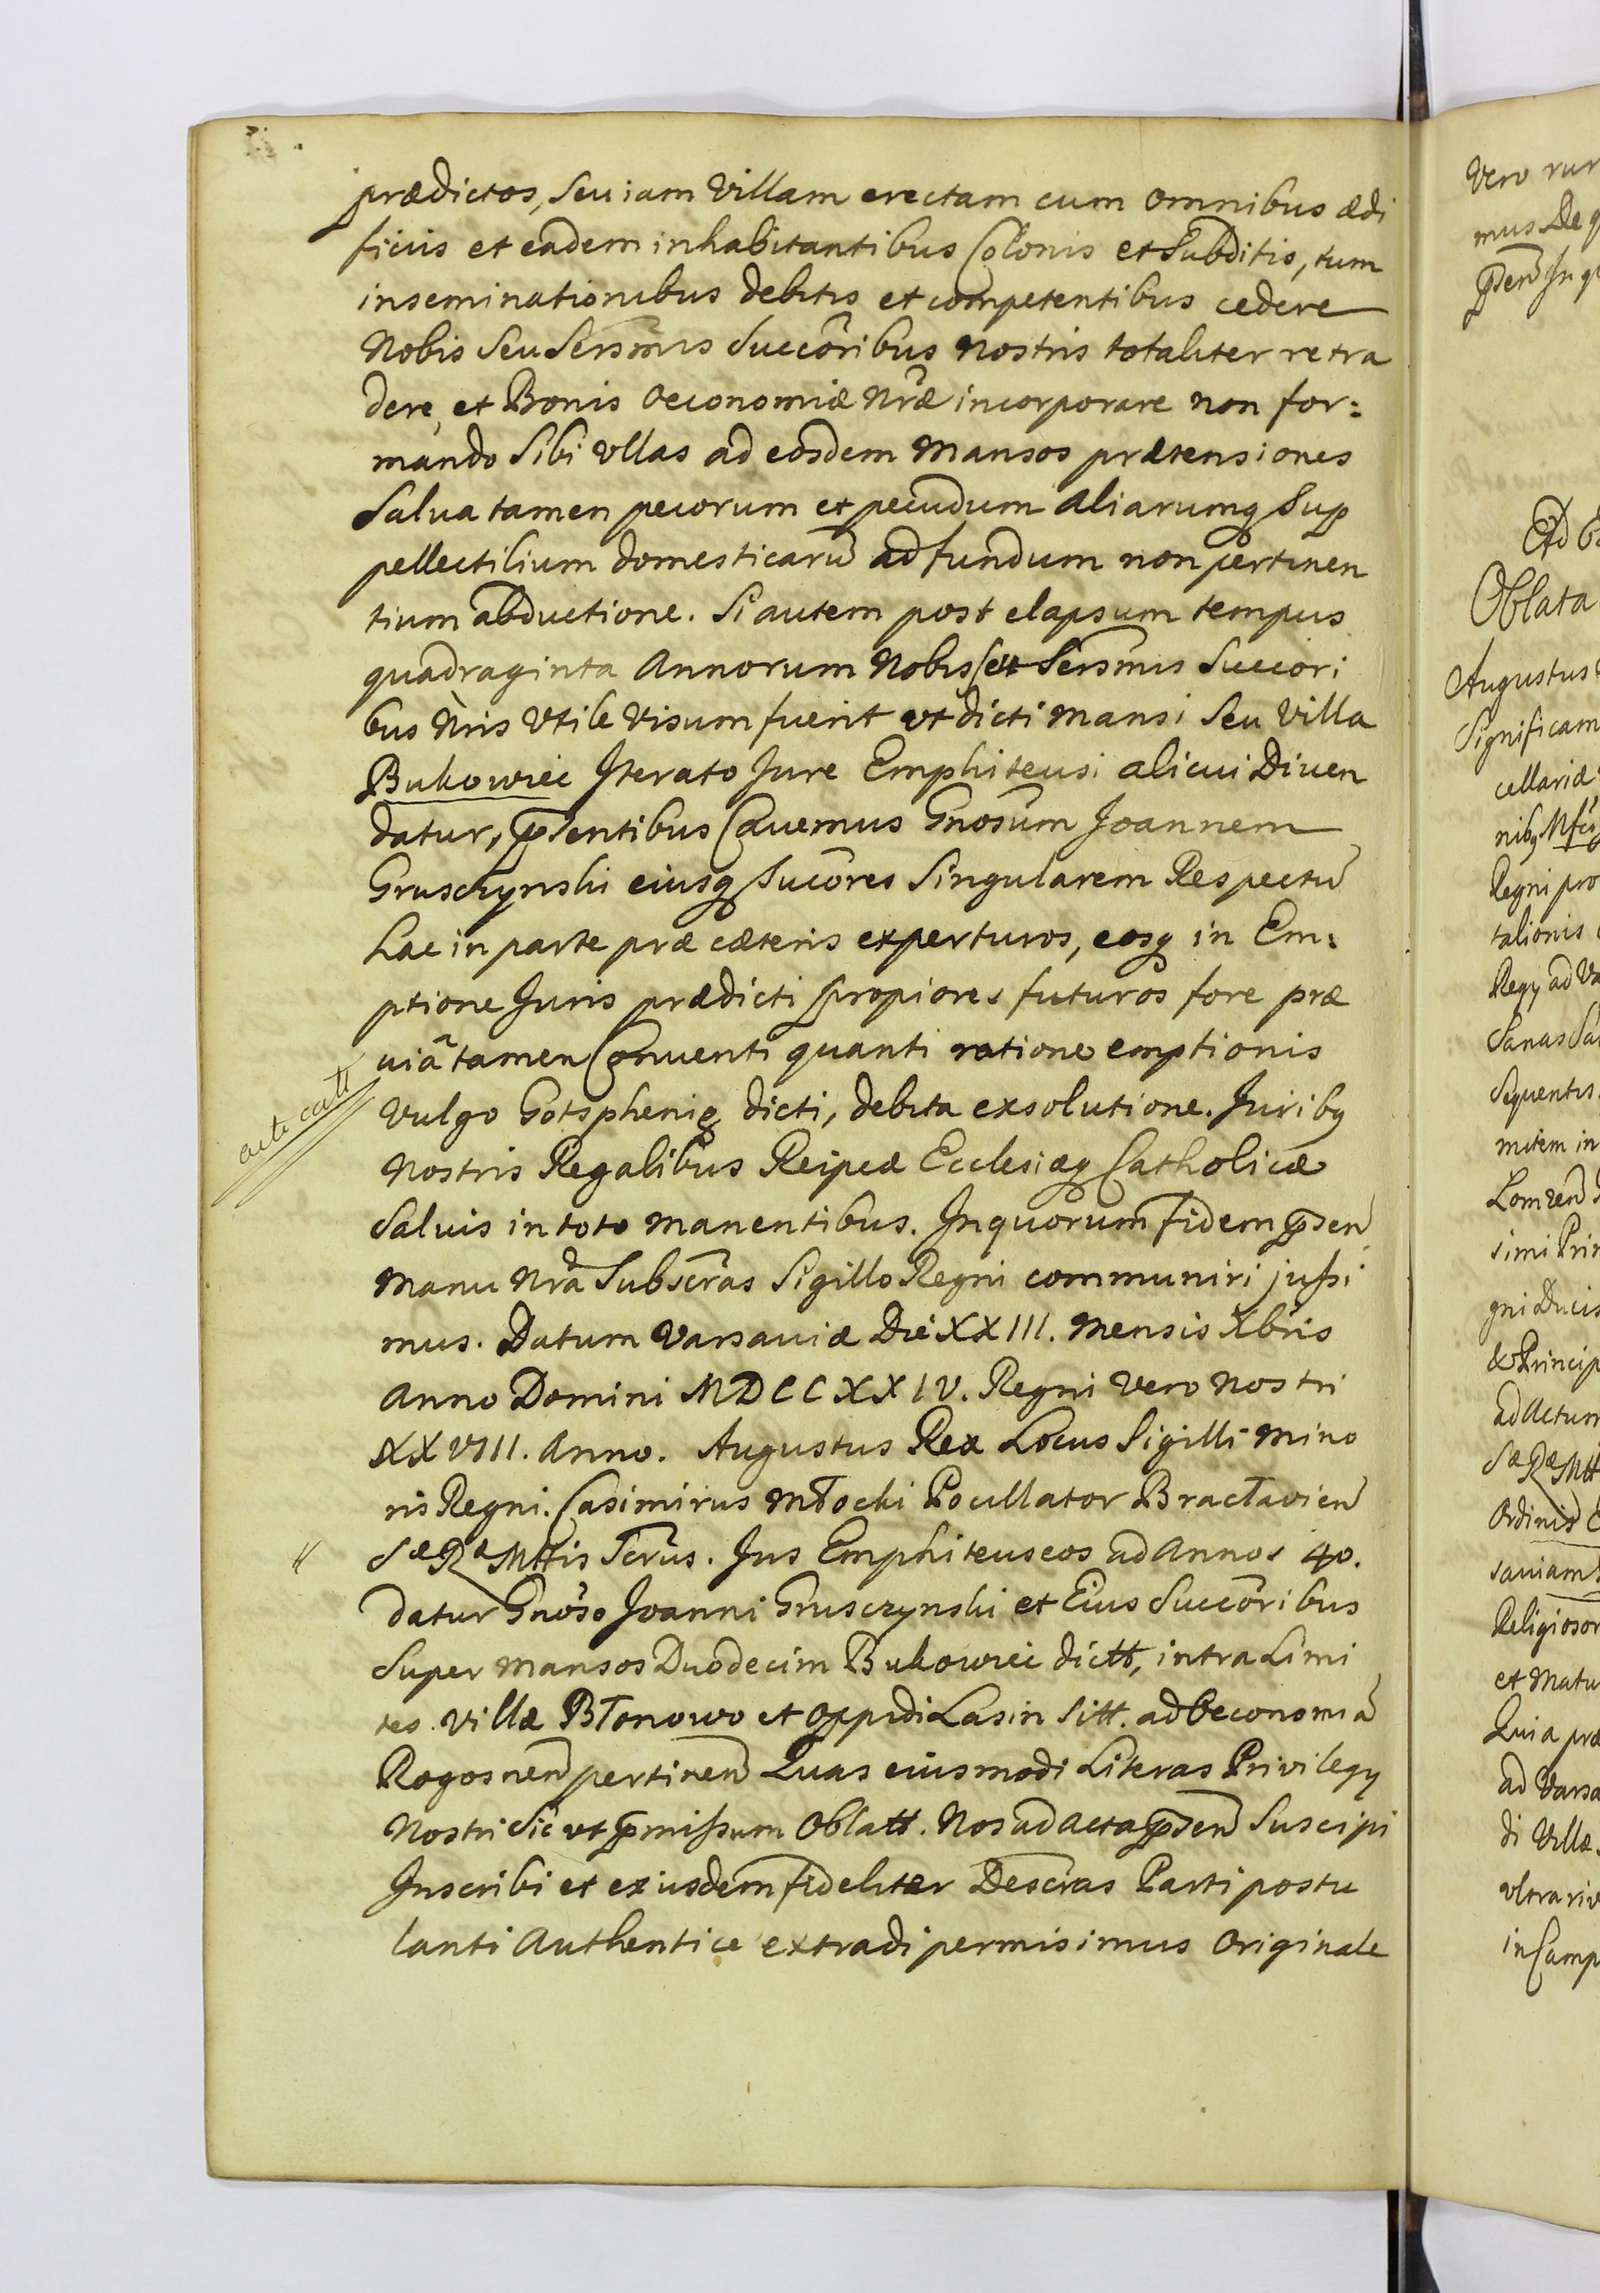 prædictos, Seu iam Villam erectam cum omnibus ædi
ficiis et eadem inhabitantibus Colonis et Subditis, tum
inseminationibus debitis et competentibus cedere
Nobis Seu Sersmis Succoribus nostris totaliter retra
dere, et Bonis Oeconomiæ Nræ incorporare non for:
mando Sibi Vllas ad eosdem Mansos prætensiones
Salva tamen pecorum et pecudum aliarumq Sup
pellectilium domesticaru ad fundum non pertinen
tium abductione. Si autem post elapsum tempus
quadraginta Annorum Nobis Sersmis Succori
bus Nris Vtile Visum fuerit vt dicti Mansi Seu Villa
Bukowiec Iterato Jure Emphiteusi alicui Diuen
datur, pñsentibus Cauemus Gnosum Joannem
Grusczynski eiusq Sucores Singularem Respectũ
hac in parte præ cæteris experturos, eosq in Em:
ptione Juris prædicti propiores futuros fore præ
uiã tamen Conuenti quanti ratione emptionis
Vulgo Gotsphenig dicti, debita exsolutione. Juribq
Nostris Regalibus Reipcæ Ecclesiæq Catholicæ
Saluis in toto manentibus. In quorum fidem pñsen
Manu Nra Subscras Sigillo Regni communiri jussi
mus. Datum Varsaviæ Die XXIII. Mensis Xbris
Anno Domini MDCCXXIV. Regni Vero Nostri
XXVIII. Anno. Augustus Rex Locus Sigilli Mino
ris Regni. Casimirus Młocki Pocillator Bracłavien
SæRæMttis Scrus. Jus Emphiteuseos ad Annos 40.
datur Gnoso Joanni Grusczynski et Eius Succoribus
Super Mansos Duodecim Bukowiec dictt, intra Limi
tes Villæ Błonowo et Oppidi Lasin Sitt. ad Oeconomiã
Rogosnen pertinen Quas eiusmodi Literas Privilegy
Nostri Sic vt præmissum Oblatt. Nos ad Acta pñsen Suscipi
Inscribi et ex iisdem fideliter Descras Parti postu
lanti Authentice extradi permisimus Originale
Vero rur
mus De q
pñsen In q
Oblata
Augustus
Significam
cellariæ
nibq Mfcis
Regni pro
talionis
Regy ad Va
Sequentis
mitem in
simi Prin
gni Ducis
& Princip
ad Actum
SæRæMtt
Ordinis
saviam
Religiosor
et Matu
Quia præ
ad Varsa
di Villæ
vltra riv
in Camp